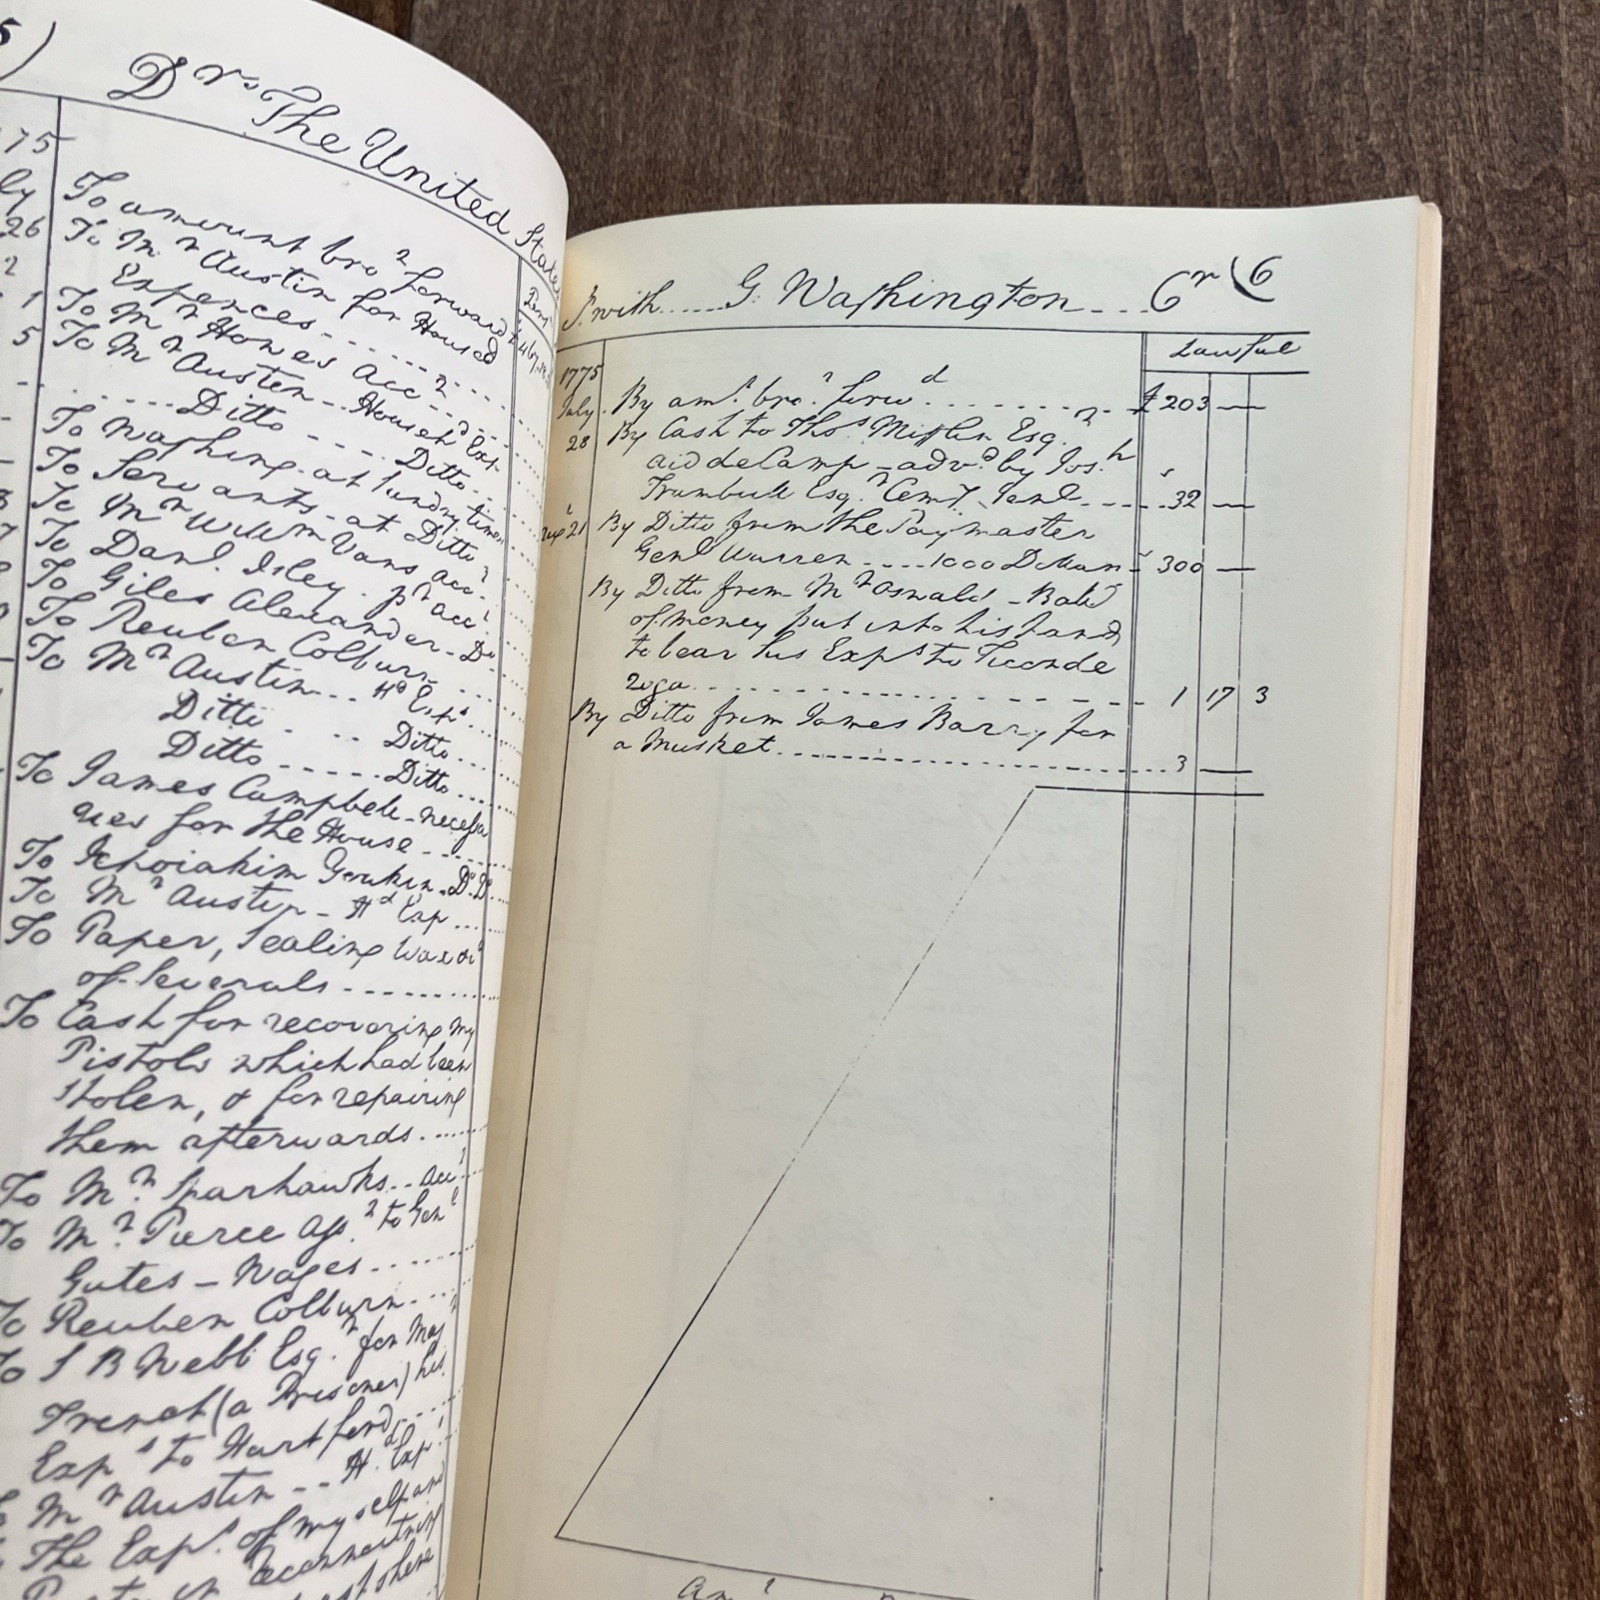 5)
Drs The United States
75
ly
26
2
1
5
To amount bro.t forward
To Mr Austin for Househd
Expences
To Mr Howes Acct
To Mr Austin - Househd Exp
Ditto Ditto
To Washing at sundry times
To Servants - at Ditto
To Mr Willm Vans acct
To Danl. Isley pr acct
To Giles Alexander - Do
To Reuben Colburn
To Mr Austin Hd Exps
Ditto Ditto
Ditto Ditto
To James Campbell - necessa
ries for the House
To Do Do
To Mr Austin - Hd Exp
To Paper, Sealing Wax
of Severals
To Cash for recovering my
Pistols which had been
stolen, & for repairing
them afterwards
To Mr Sparhawks acct
To Mr Pierce to Genl
Gates - Wages
To Reuben Colburn
To S B Webb Esqr for Majr
French (a Prisoner) his
Exps to Hartford
Mr Austin Hd Exp
The Exps. of myself and
Party in reconnoitring
with G: Washington Cr (6
Lawful
1775
July By amt. bro.t forwd £ 203 —
28 By Cash to Thos Mifflin Esqr
aid de Camp - advd by Josh
Trumbull Esqr Comy Genl 32 —
Augt 21 By Ditto from the Paymaster
Genl Warren 1000 Dollars 300 —
By Ditto from Mr Oswald - Bale
of money put into his hands
to bear his Exps to Ticonde
roga 1 17 3
By Ditto from James Barry for
a Musket 3 —
Amt